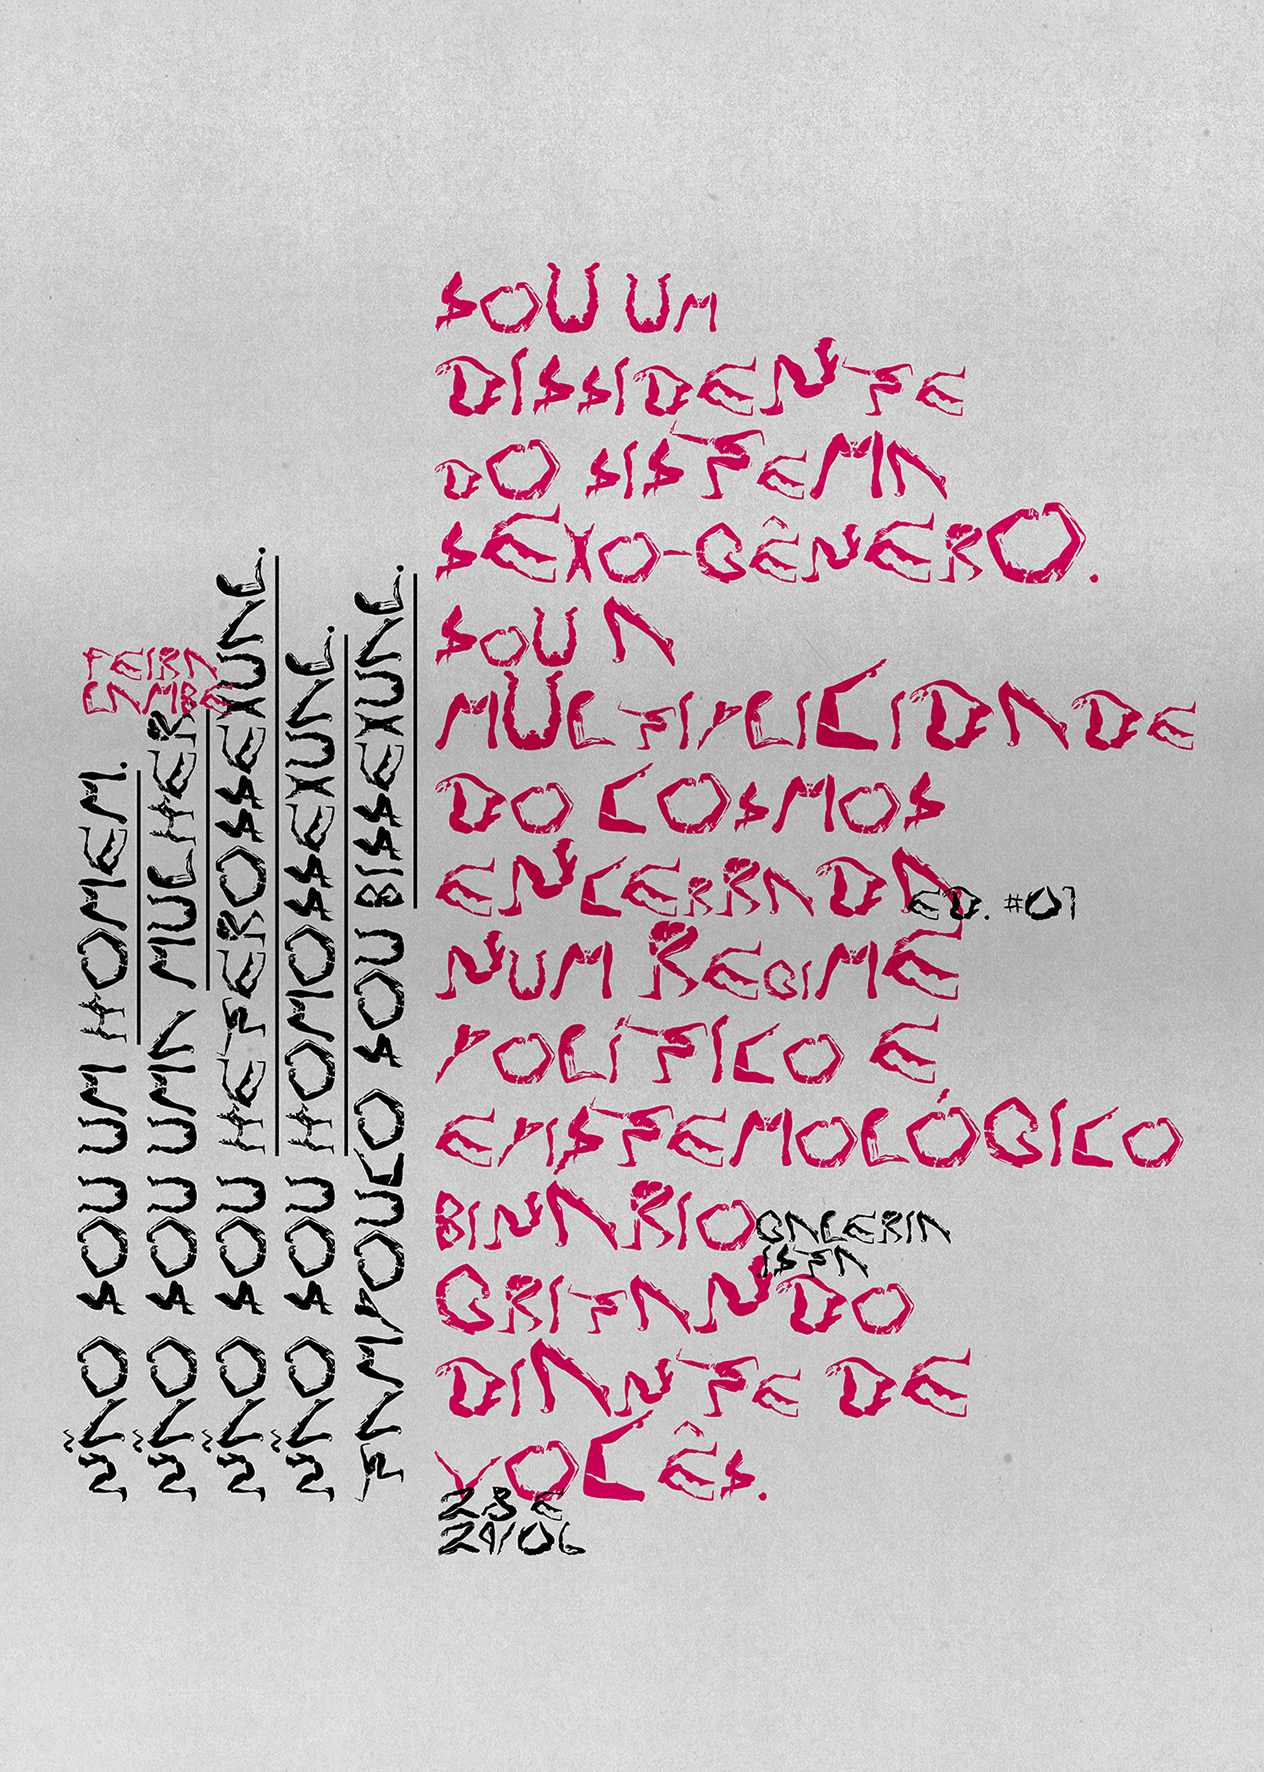 NÃO SOU UM HOMEM.
NÃO SOU UMA MULHER
NÃO SOU HETEROSSEXUAL.
NÃO SOU HOMOSSEXUAL.
TAMPOUCO SOU BISSEXUAL.
FEIRA
LAMBE
SOU UM
DISSIDENTE
DO SISTEMA
SEXO-GÊNERO.
SOU A
MULTIPLICIDADE
DO COSMOS
ENCERRADA
ED. #01
NUM REGIME
POLÍTICO E
EPISTEMOLÓGICO
BINÁRIO
GALERIA
ISTA
GRITANDO
DIANTE DE
VOCÊS.
23 E
24/06